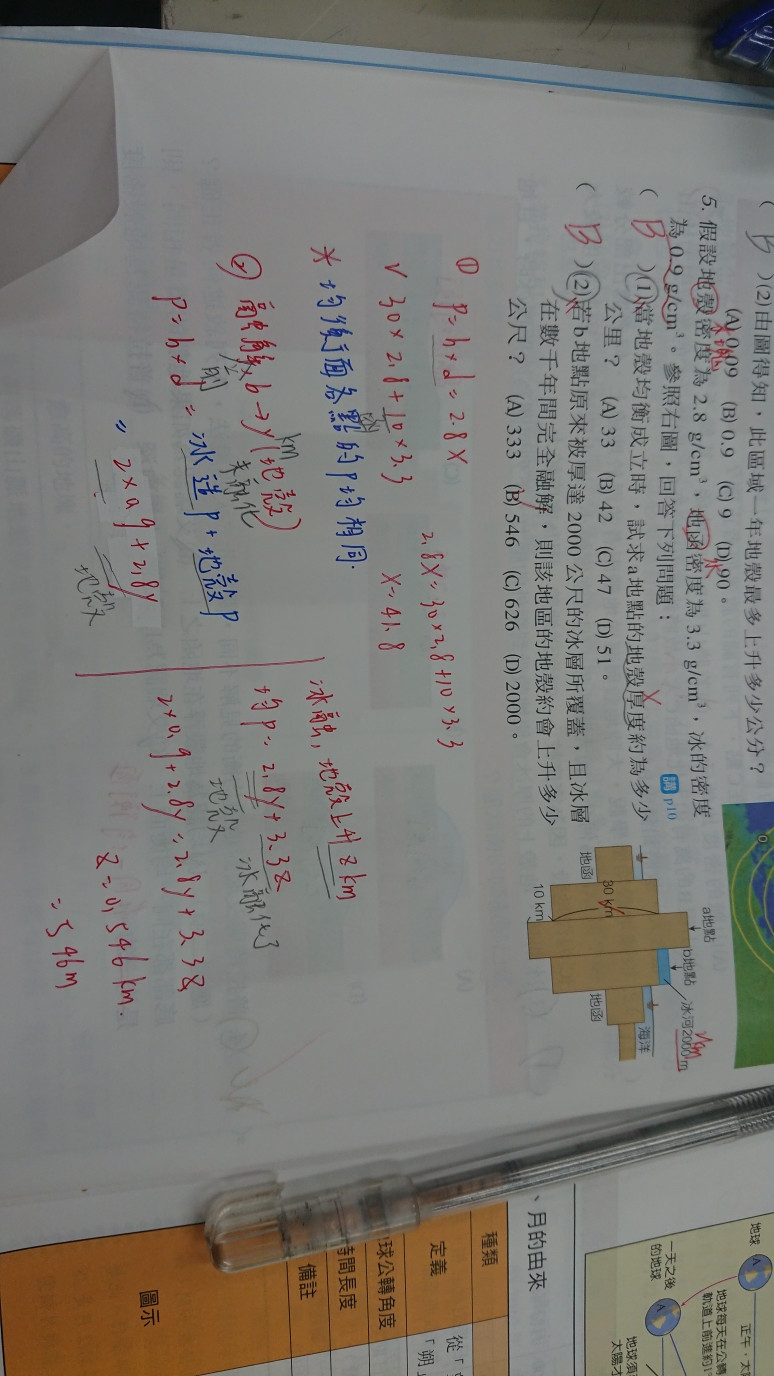 ( B )(2)由圖得知，此區域一年地殼最多上升多少公分？
(A) 0.09 (B) 0.9 (C) 9 (D) 90。
5. 假設地殼密度為 2.8 g/cm³，地函密度為 3.3 g/cm³，冰的密度
為 0.9 g/cm³。參照右圖，回答下列問題：
講 p10
( B )(1)當地殼均衡成立時，試求a地點的地殼厚度約為多少
公里？ (A) 33 (B) 42 (C) 47 (D) 51。
( B )(2)若b地點原來被厚達 2000 公尺的冰層所覆蓋，且冰層
在數千年間完全融解，則該地區的地殼約會上升多少
公尺？ (A) 333 (B) 546 (C) 626 (D) 2000。
a地點
b地點
冰河2000 m
km
海洋
地函
30 km
10 km
地函
① P=h×d=2.8X
2.8X=30×2.8+10×3.3
√ 30×2.8+10×3.3
X=41.8
* 均衡面各點的P均相同.
② 融解前 b→y km (地殼)
未融化
P=h×d=冰造P+地殼P
=2×0.9+2.8y
地殼
冰融，地殼上升z km
均P=2.8y+3.3z
地殼
冰融化了
2×0.9+2.8y=2.8y+3.3z
z=0.546 km.
=546m
、月的由來
種類
定義
球公轉角度
時間長度
備註
圖示
從「
「朔」
地球
A
正午，太
地球每天在公轉
軌道上前進約1
一天之後
的地球
A
地球須
太陽才